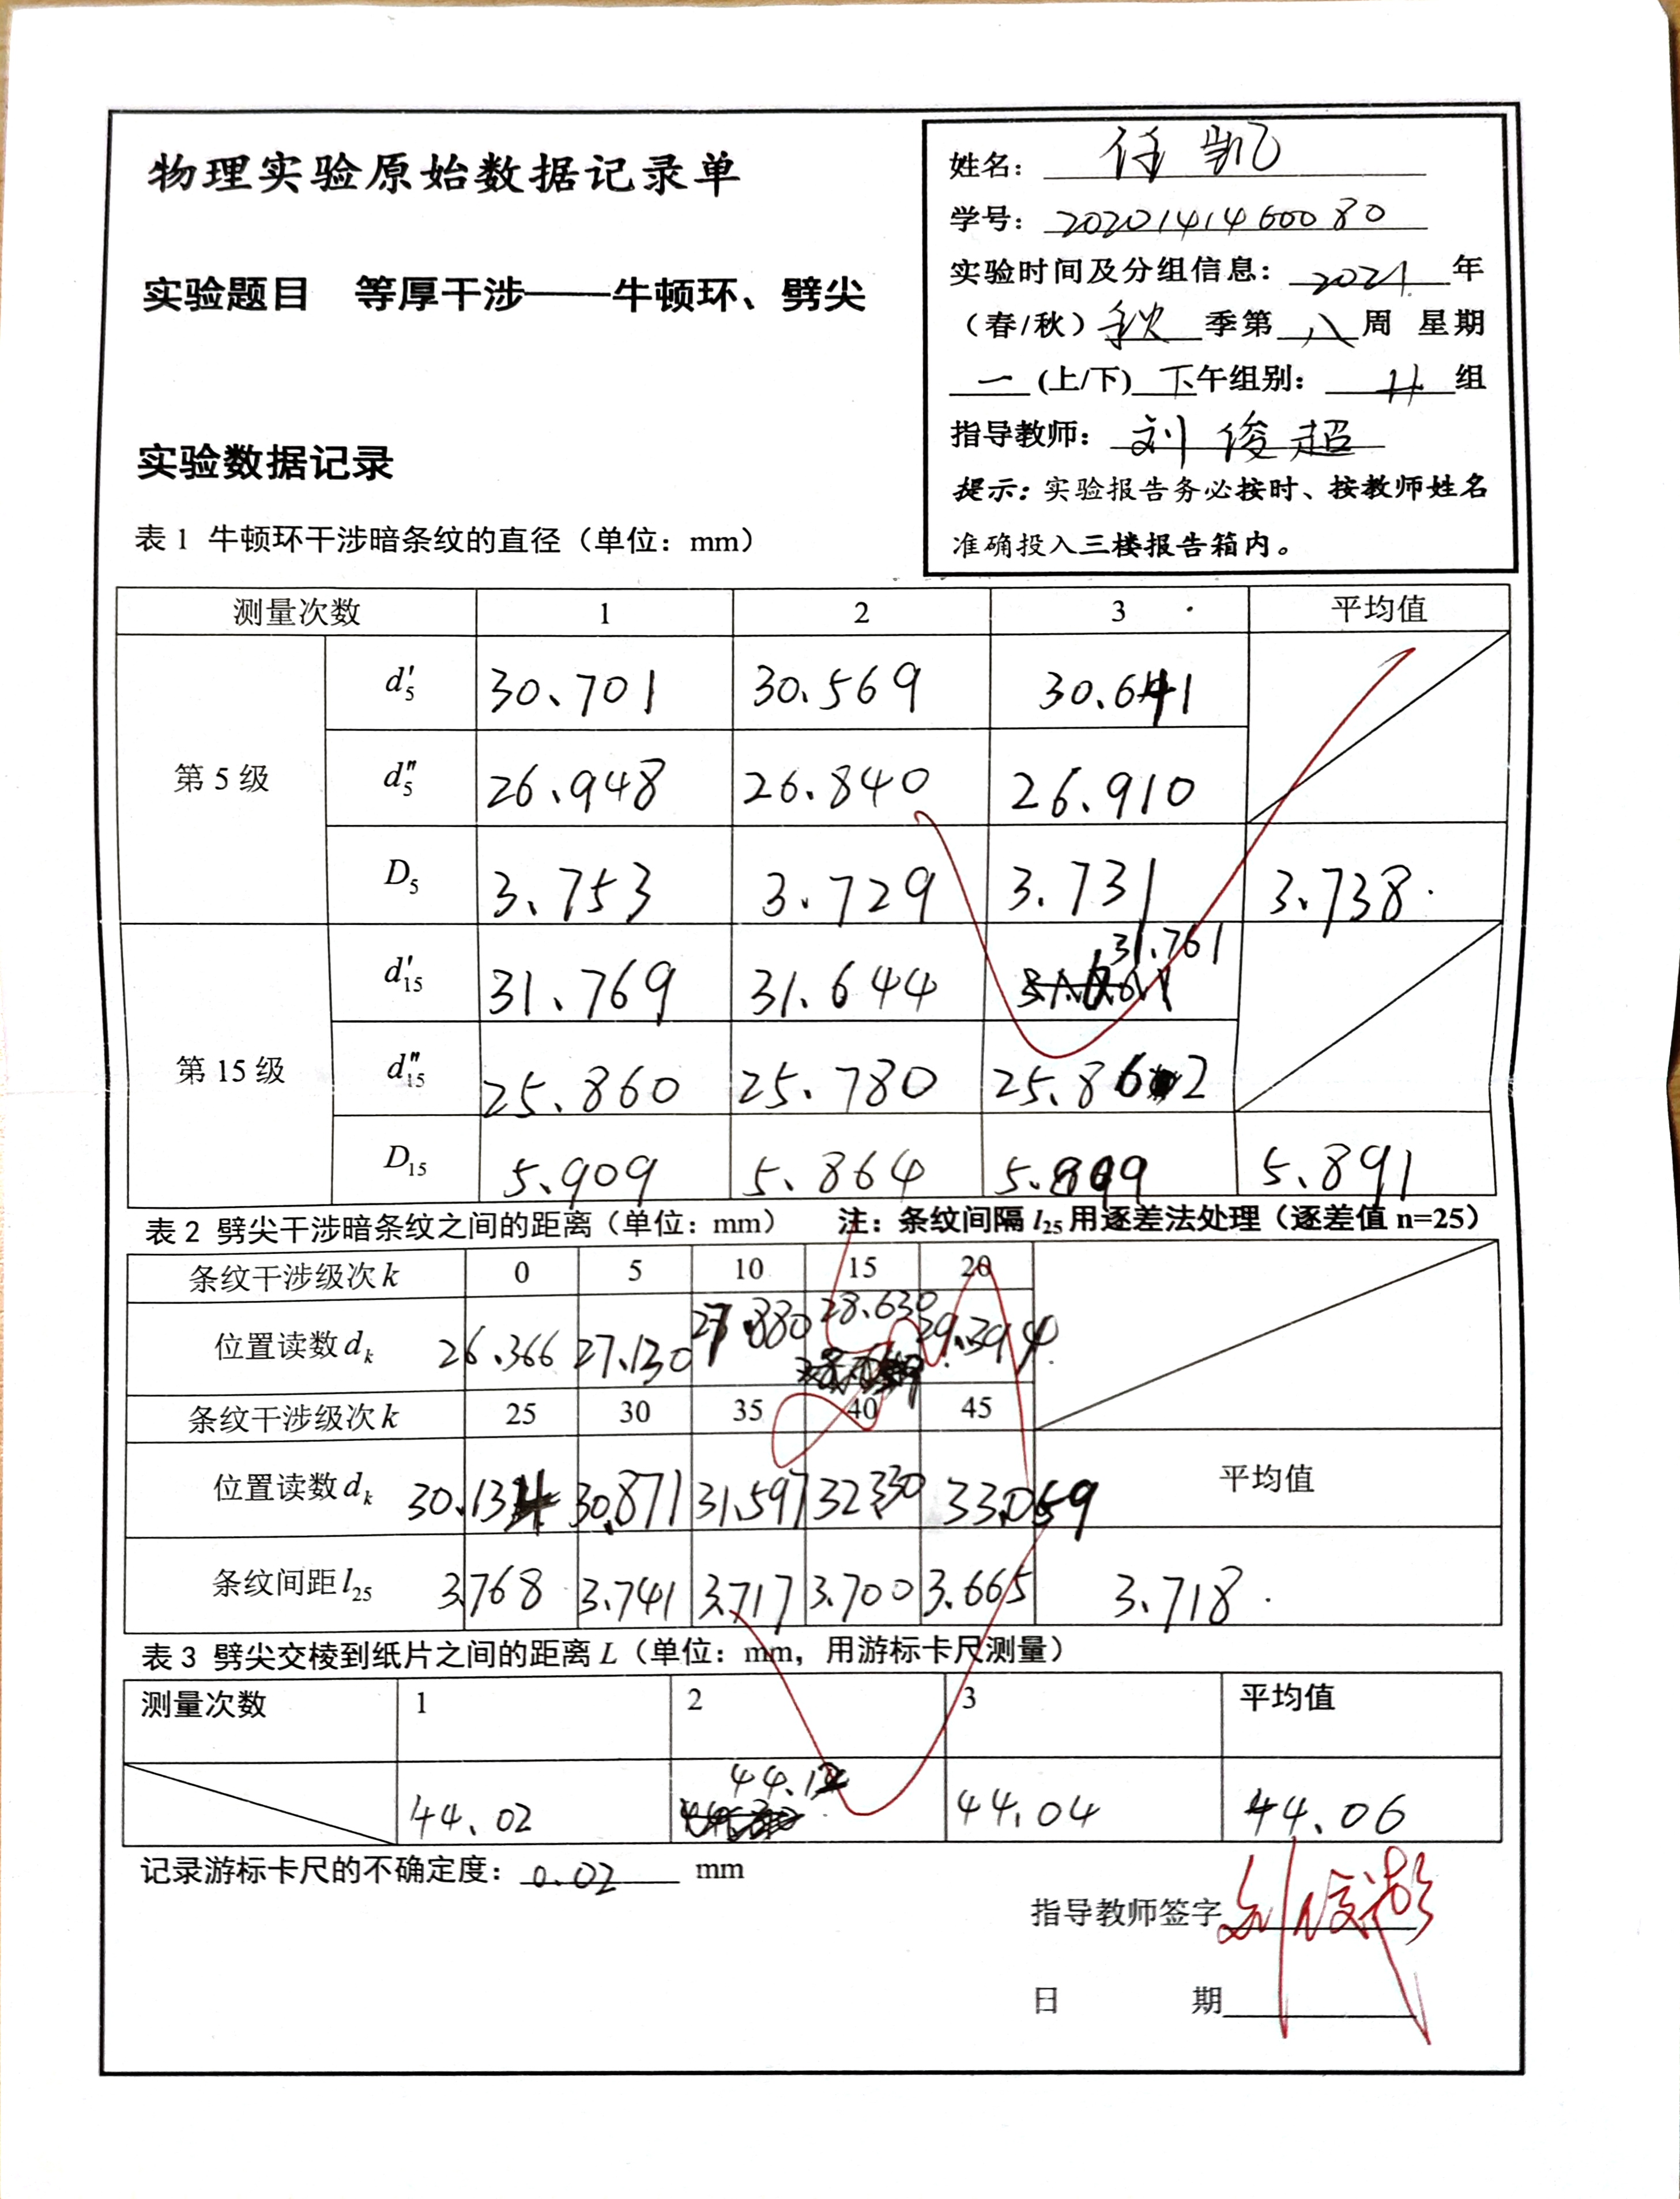 物理实验原始数据记录单
实验题目 等厚干涉——牛顿环、劈尖
实验数据记录
姓名： 任凯
学号： 2020141460080
实验时间及分组信息： 2021 年
（春/秋）秋 季第 八 周 星期
一 (上/下) 下午组别： 11 组
指导教师： 刘俊超
提示：实验报告务必按时、按教师姓名
准确投入三楼报告箱内。
表 1 牛顿环干涉暗条纹的直径（单位：mm）
测量次数 1 2 3 平均值
第 5 级 d′5 30.701 30.569 30.641
d″5 26.948 26.840 26.910
D5 3.753 3.729 3.731 3.738
第 15 级 d′15 31.769 31.644 31.761
d″15 25.860 25.780 25.862
D15 5.909 5.864 5.899 5.891
表 2 劈尖干涉暗条纹之间的距离（单位：mm） 注：条纹间隔 l25 用逐差法处理（逐差值 n=25）
条纹干涉级次 k 0 5 10 15 20
位置读数 dk 26.366 27.130 27.880 28.630 29.394
条纹干涉级次 k 25 30 35 40 45
位置读数 dk 30.134 30.871 31.597 32.330 33.059 平均值
条纹间距 l25 3.768 3.741 3.717 3.700 3.665 3.718
表 3 劈尖交棱到纸片之间的距离 L（单位：mm，用游标卡尺测量）
测量次数 1 2 3 平均值
44.02 44.12 44.04 44.06
记录游标卡尺的不确定度： 0.02 mm
指导教师签字 刘俊超
日 期